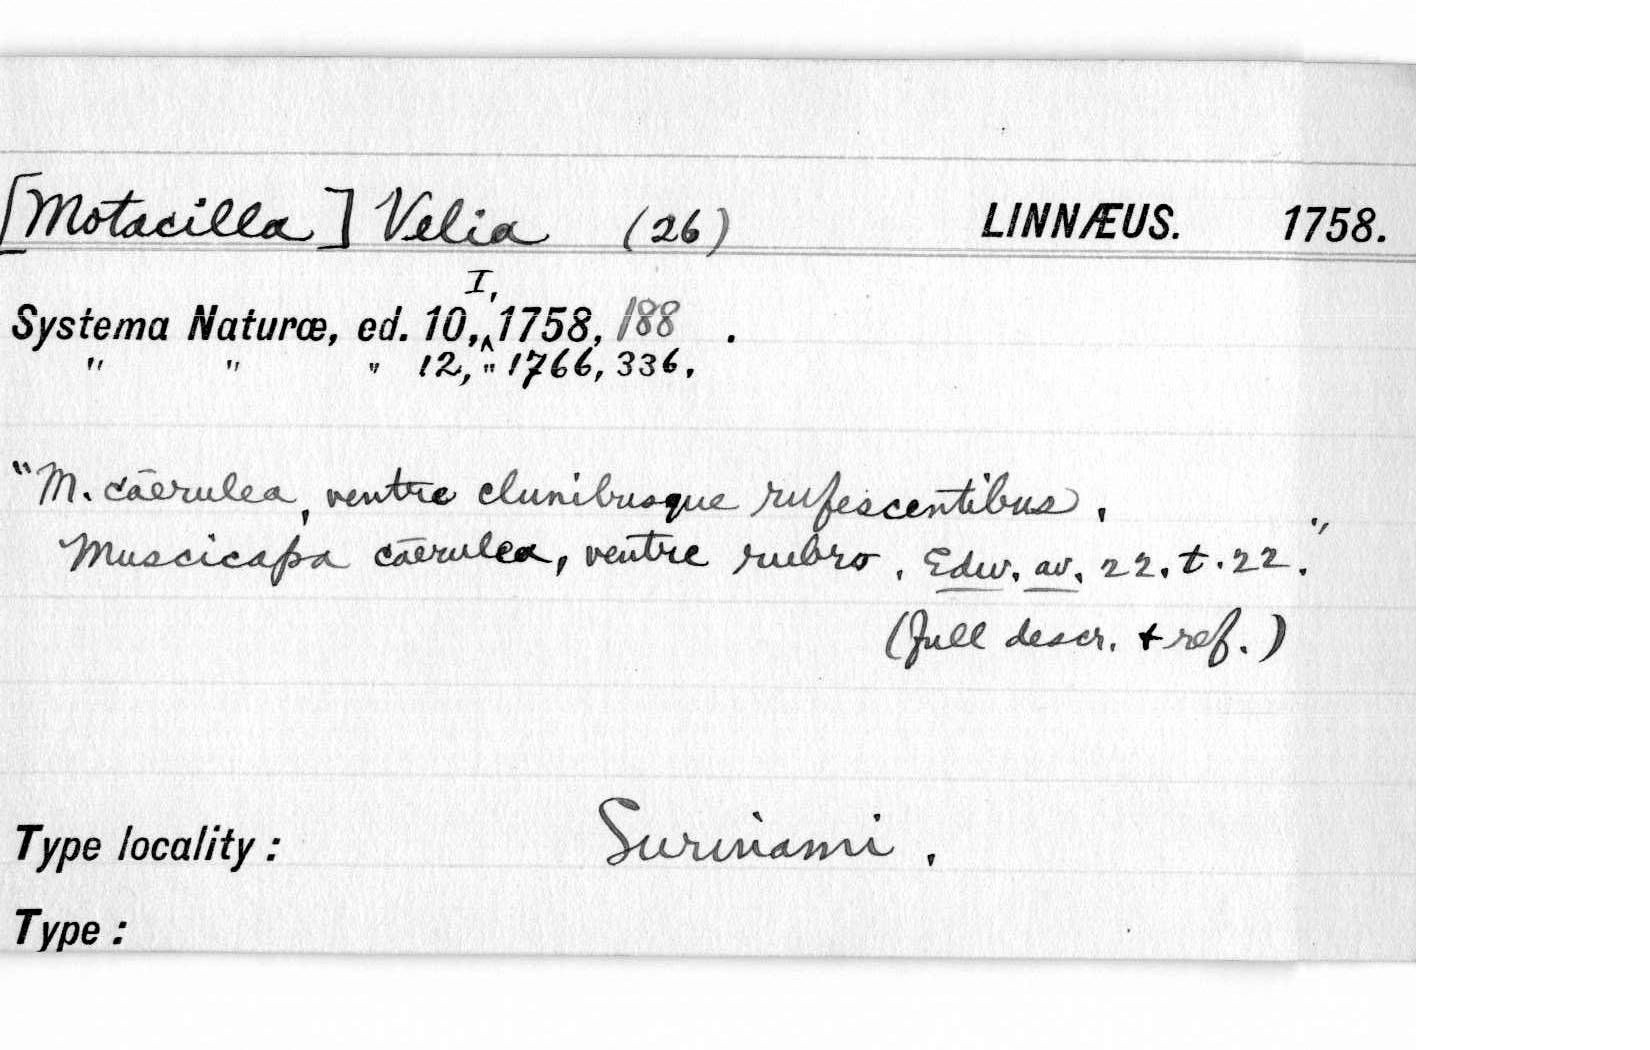 [Motacilla] Velia (26) LINNÆUS. 1758.
I,
Systema Naturæ, ed. 10,^1758, 188 .
" " " 12, " 1766, 336.
"M. cāerulea, ventre clunibusque rufescentibus.
Muscicapa cāerulea, ventre rubro. Edw. av. 22. t. 22."
(full descr. + ref.)
Type locality: Surinami.
Type: